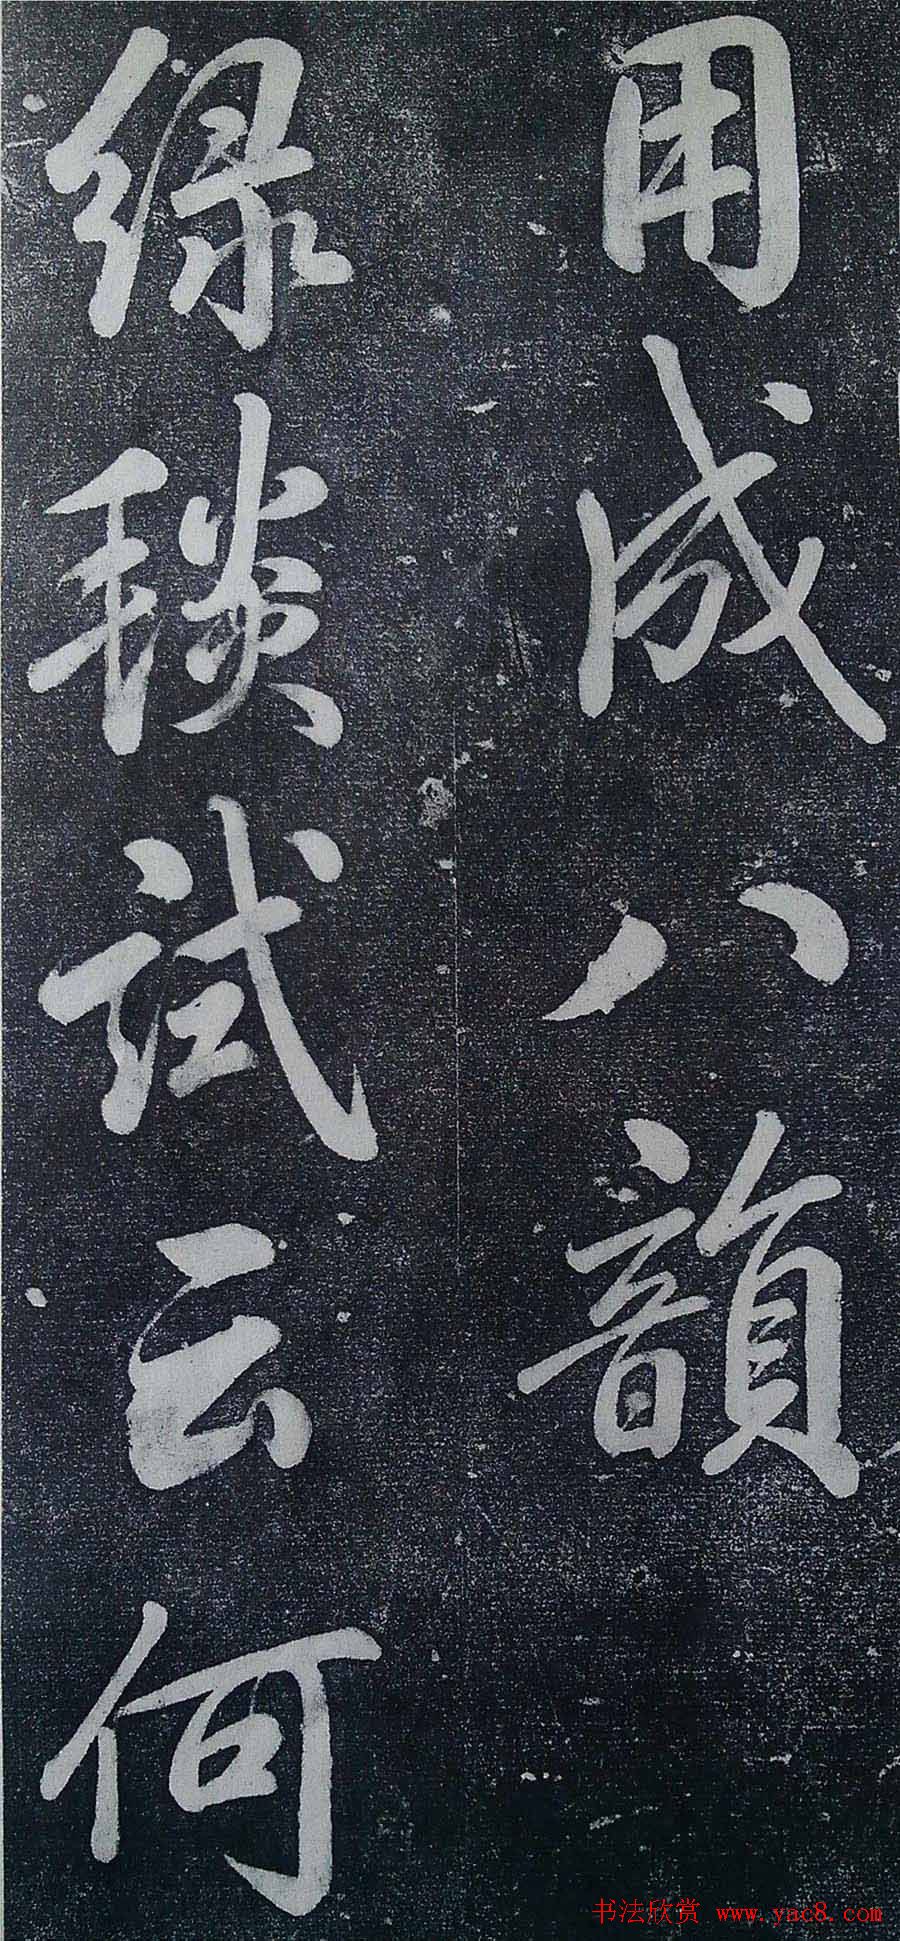 用成八韻
緑琰試云何
书法欣赏 www.yac8.com